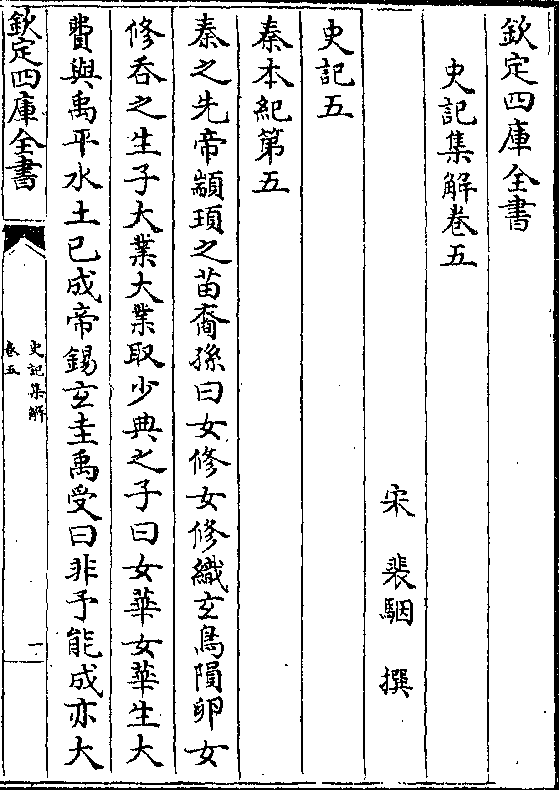 欽定四庫全書
史記集解卷五
宋 裴駰 撰
史記五
秦本紀第五
秦之先帝顓頊之苗裔孫曰女修女修織玄鳥隕卵女
修吞之生子大業大業取少典之子曰女華女華生大
費與禹平水土已成帝錫玄圭禹受曰非予能成亦大
欽定四庫全書
史記集解
卷五
一